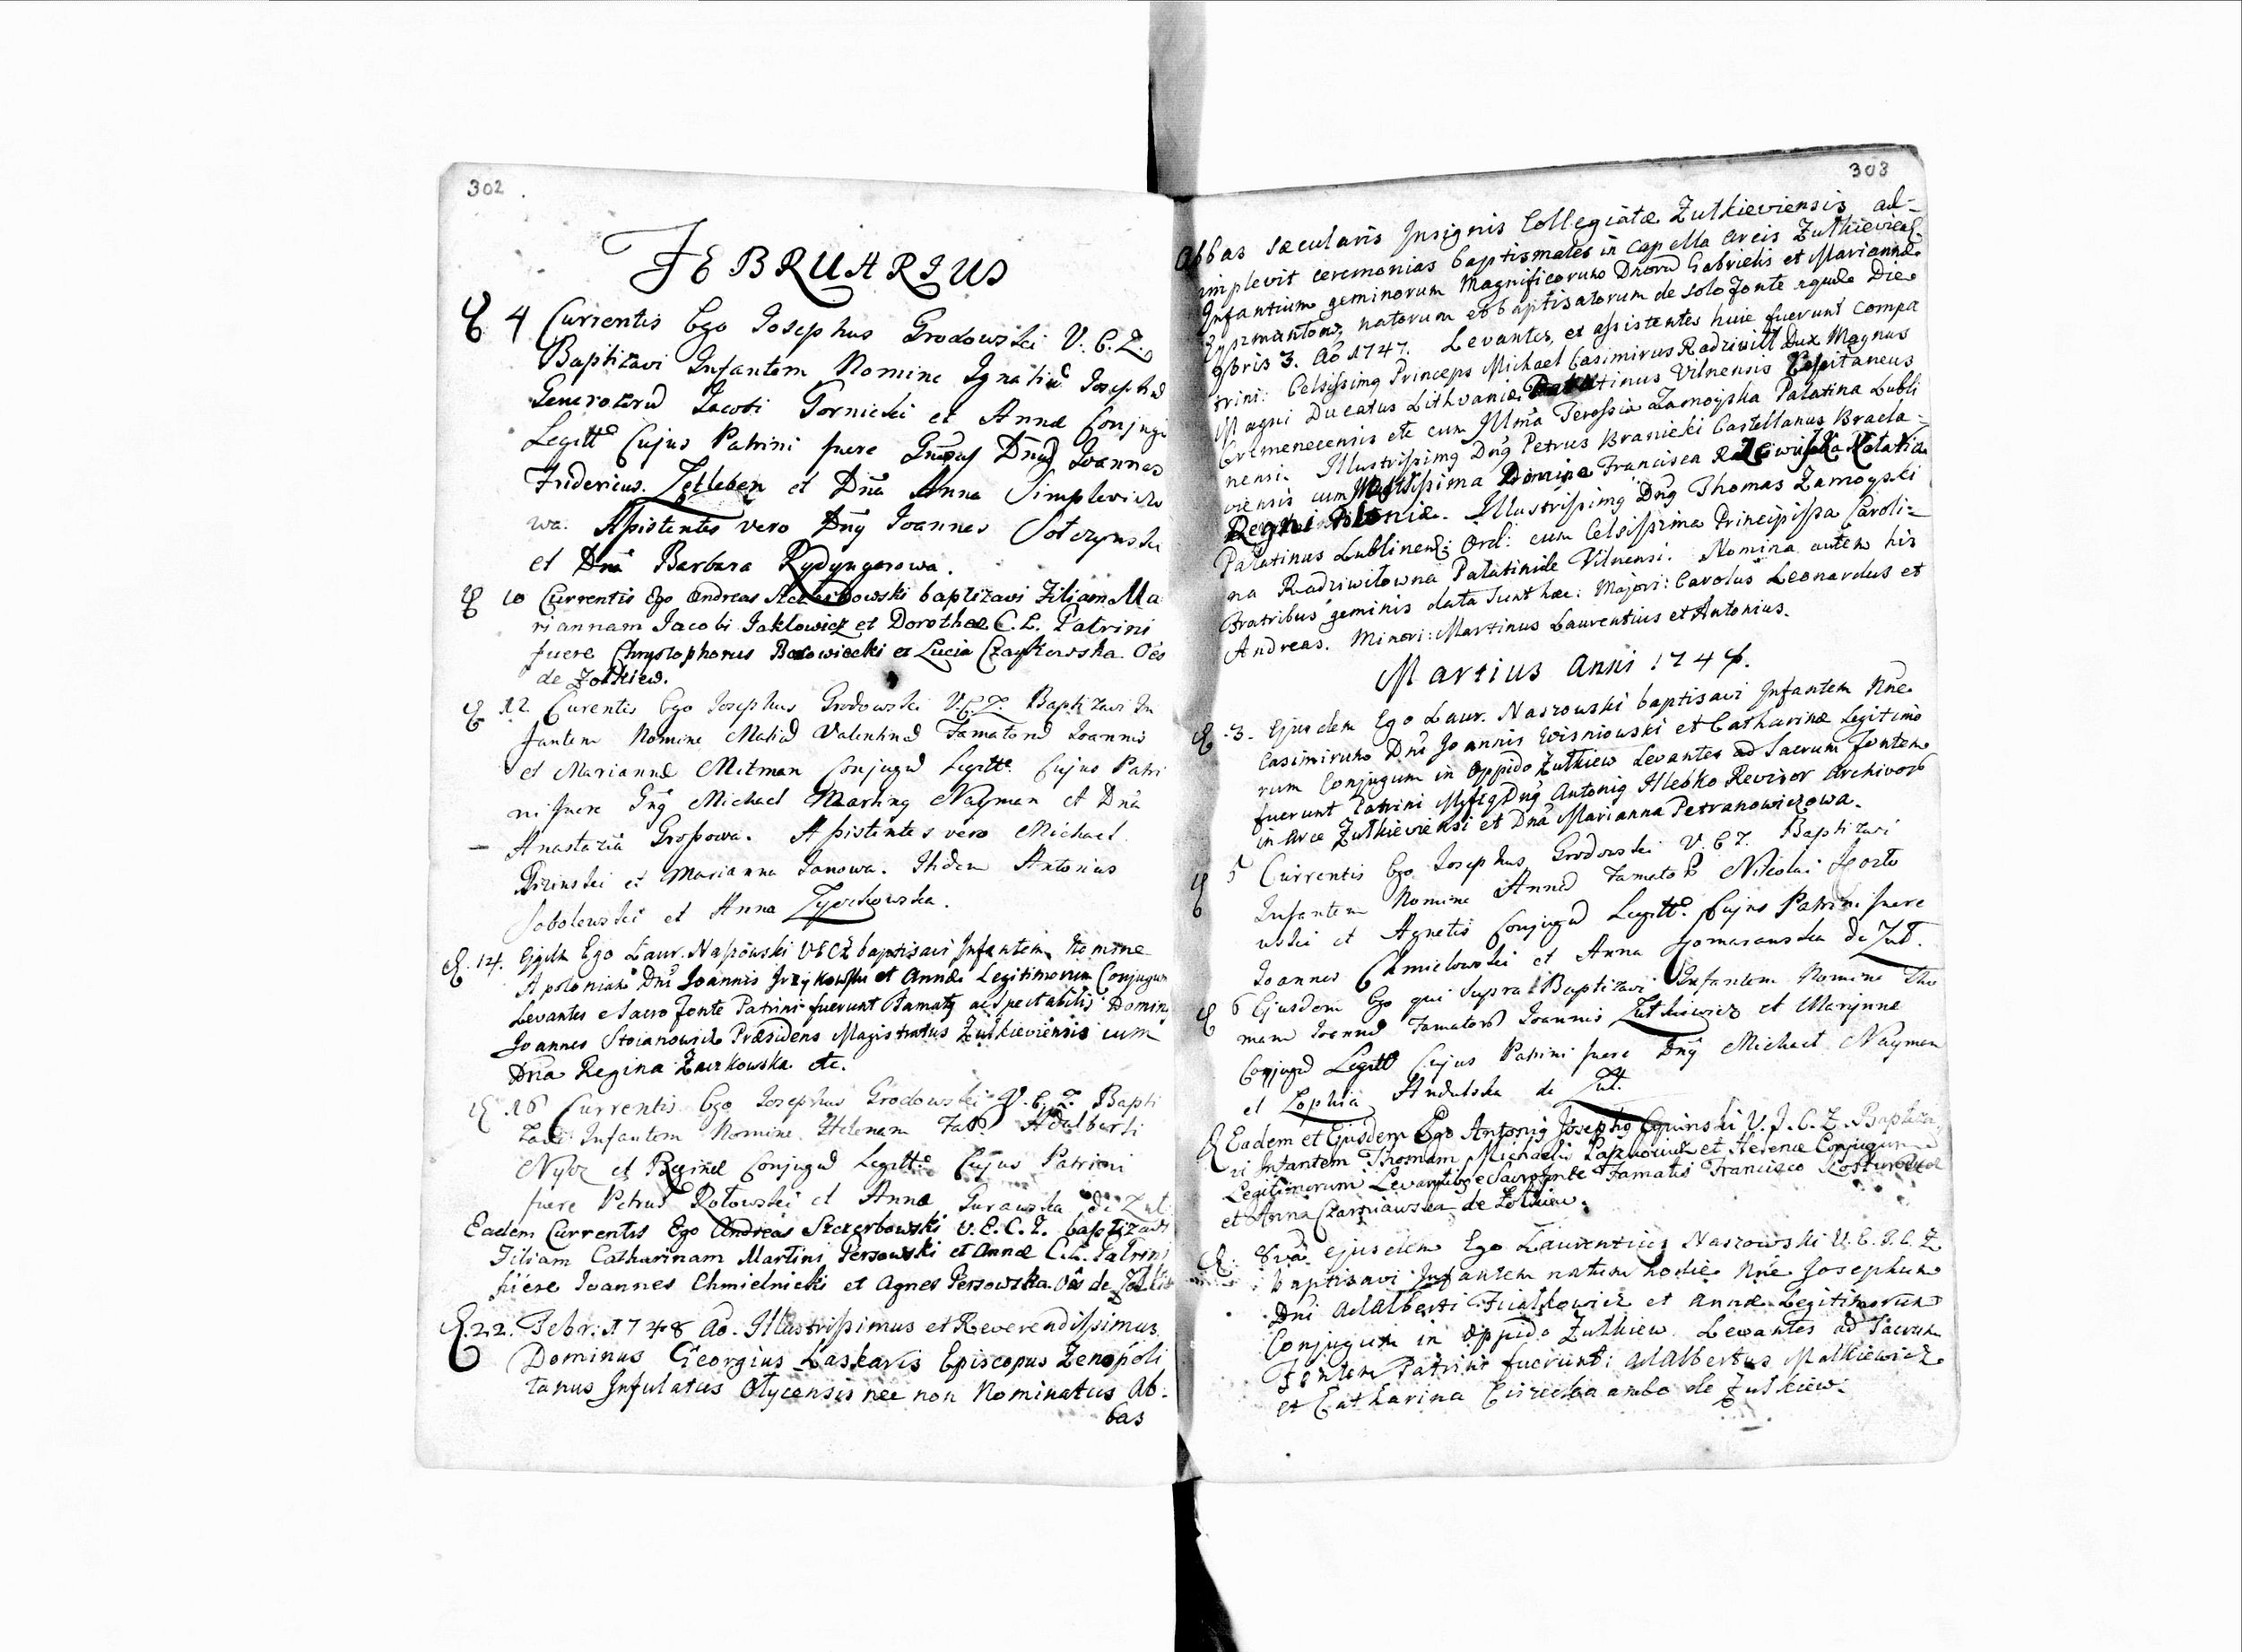 302
FEBRUARIUS
4 Currentis Ego Josephus Grodowski V. C. Z.
Baptizavi Infantem Nomine Ignatiũ Josephũ
Generosorũ Jacobi Gornicki et Annæ Conjugũ
Legitt. Cujus Patrini fuere Dnũs Joannes
Fridericus Zetleben et Dña Anna Simplewiczo
wa. Assistentes vero Dnũs Joannes
et Dña Barbara Rydyngerowa.
10 Currentis Ego Andreas baptizavi Filiam Ma
riannam Jacobi Jaklowicz et Dorotheæ C. L. Patrini
fuere Chrystophorus et Lucia Czaykowska. Oẽs
de Zolkiew.
12. Curentis Ego Josephus Grodowski V.C.Z. Baptizavi In
fantem Nomine Valentinũ Famatorũ Joannis
et Mariannæ Mitman Conjugũ Legitt. Cujus Patri
ni fuere Michael Martinus Nayman et Dña
Anastazia Grossowa. Assistentes vero Michael
et Marianna Janowa. Itidem Antonius
Sobolewski et Anna
14. Ego Laur. Naszowski baptisavi Infantem Nomine
Apoloniam Dni Joannis et Annæ Legitimorum Conjugum
Levantes e Sacro fonte Patrini fuerunt Famatus ac Spectabilis Dominus
Joannes Stoianowicz Præsidens Magistratus Zulkieviensis cum
Dña Regina Zaczkowska etc.
16 Currentis Ego Josephus Grodowski V. C. Z. Bapti
zavi Infantem Nomine Helenam Fam. Adalberti
et Reginæ Conjugũ Legitt. Cujus Patrini
fuere Petrus Rotowski et Anna Gurawska de Zul.
Eadem Currentis Ego Andreas Szczerbowski V. E. C. Z. baptizavi
Filiam Catharinam Martini Persowski et Annæ C. L. Patrini
fuere Joannes Chmielnicki et Agnes Persowska. Oẽs de
22. Febr: 1748 Aõ. Illustrissimus et Reverendissimus
Dominus Georgius Laskaris Episcopus Zenopoli
tanus Infulatus Olycensis nec non Nominatus Ab-
bas
303
Abbas Sæcularis Insignis Collegiatæ Zulkieviensis ad-
implevit ceremonias baptismales in Capella Arcis Zulkievien:
Infantium geminorum Magnificorum Dnorũ Gabrielis et Mariannæ
natorum et baptisatorum de solo fonte aquæ Die
9bris 3. Aõ 1747. Levantes, et assistentes huic fuerunt Compa
trini: Celsissimus Princeps Michael Casimirus Radziwill Dux Magnus
Magni Ducatus Lithvaniæ Palatinus Vilnensis Capitaneus
Cremenecensis etc cum Illma Teressia Zamoyska Palatina Lubli
nensi. Illustrissimus Dnus Petrus Branicki Castellanus Bracla-
viensis cum Illustrissima Domina Francisca
Regni Poloniæ. Illustrissimus Dnus Thomas Zamoyski
Palatinus Lublinens: Ord: cum Celsissima Principissa Caroli-
na Radziwilowna Palatinide Vilnensi. Nomina autem his
Bratribus geminis data sunt hæc: Majori: Carolus Leonardus et
Andreas. Minori: Martinus Laurentius et Antonius.
Martius Anni 1748.
3. Ejusdem Ego Laur. Naszowski baptisavi Infantem Nñe
Casimirum Dni Joannis Wisniowski et Catharinæ Legitimo
rum Conjugum in Oppido Zulkiew Levantes ad Sacrum fontem
fuerunt Patrini Dnus Antonius Hlebko Revisor Archivorũ
in Arce Zulkieviensi et Dña Marianna Petranowiczowa.
5 Currentis Ego Josephus Grodowski V. C. Z. Baptizavi
Infantem Nomine Annã Famatorũ Nicolai
wski et Agnetis Conjugũ Legitt. Cujus Patrini fuere
Joannes Chmielowski et Anna de Zul.
6 Ejusdem Ego qui Supra Baptizavi Infantem Nomine Tho
mam Joannẽ Famatorũ Joannis Zulkiewicz et Marynnæ
Conjugũ Legitt. Cujus Patrini fuere Dnus Michael Nayman
et Zophia de Zul.
Eadem et Ejusdem Ego Antonius Josephus V. J. C. Z. Baptiza
vi Infantem Thomam Michaelis et Helenæ Conjugum
Legitimorum Levantibus e Sacro fonte Famatis Francisco
et Anna Czarniawska de Zolkiew.
8va Ejusdem Ego Laurentius Naszowski V. C. Z.
baptisavi Infantem natum hodie Nñe Josephum
Dni Adalberti Fialkowicz et Annæ Legitimorum
Conjugum in Oppido Zulkiew. Levantes ad Sacrum
Fontem Patrini fuerunt: Adalbertus Malkiewicz
et Catharina ambo de Zulkiew.